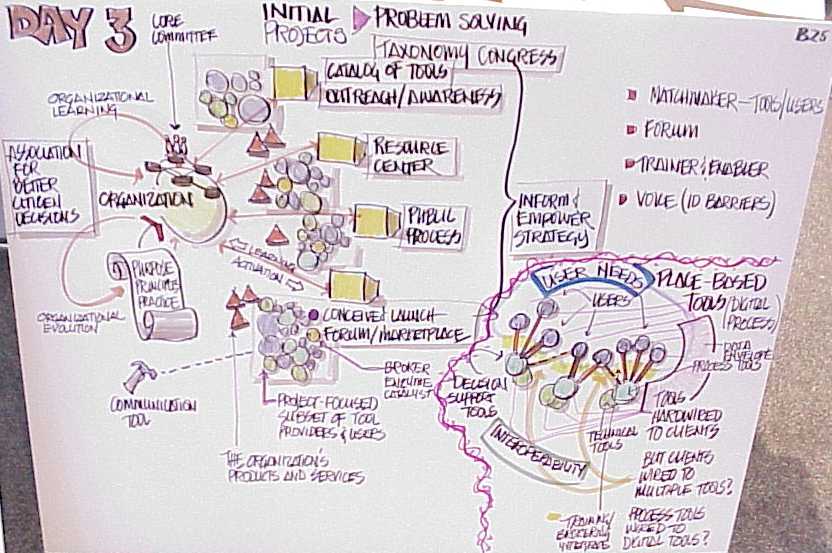 DAY 3
CORE
COMMITTEE
INITIAL
PROJECTS
PROBLEM SOLVING
B25
TAXONOMY CONGRESS
CATALOG OF TOOLS
OUTREACH/AWARENESS
MATCHMAKER—TOOLS/USERS
FORUM
TRAINER & ENABLER
VOICE (ID BARRIERS)
ORGANIZATIONAL
LEARNING
ASSOCIATION
FOR
BETTER
CITIZEN
DECISIONS
ORGANIZATION
RESOURCE
CENTER
PUBLIC
PROCESS
INFORM &
EMPOWER
STRATEGY
LEARNING
ACTIVATION
PURPOSE
PRINCIPLE
PRACTICE
ORGANIZATIONAL
EVOLUTION
CONCEIVE & LAUNCH
FORUM/MARKETPLACE
BROKER
CATALYST
COMMUNICATION
TOOL
PROJECT-FOCUSED
SUBSET OF TOOL
PROVIDERS & USERS
THE ORGANIZATION'S
PRODUCTS AND SERVICES
USER NEEDS
USERS
PLACE-BASED
TOOLS/DIGITAL
(PROCESS)
DATA
ENVELOPE
PROCESS TOOLS
DECISION
SUPPORT
TOOLS
INTEROPERABILITY
TECHNICAL
TOOLS
TOOLS
HARDWIRED
TO CLIENTS
BUT CLIENTS
WIRED TO
MULTIPLE TOOLS?
TRAINING/
INTERFACE
PROCESS TOOLS
WIRED TO
DIGITAL TOOLS?